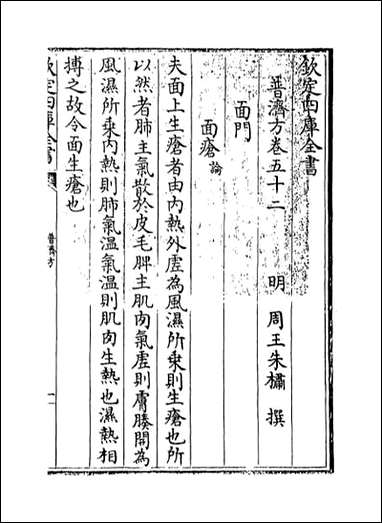 欽定四庫全書
普濟方卷五十二　明　周王朱橚　撰
面門
面瘡論
夫面上生瘡者由内熱外虚為風濕所乗則生瘡也所
以然者肺主氣散於皮毛脾主肌肉氣虚則膚腠開為
風濕所乗内熱則肺氣温氣温則肌肉生熱也濕熱相
搏之故令面生瘡也
欽定四庫全書
普濟方
一